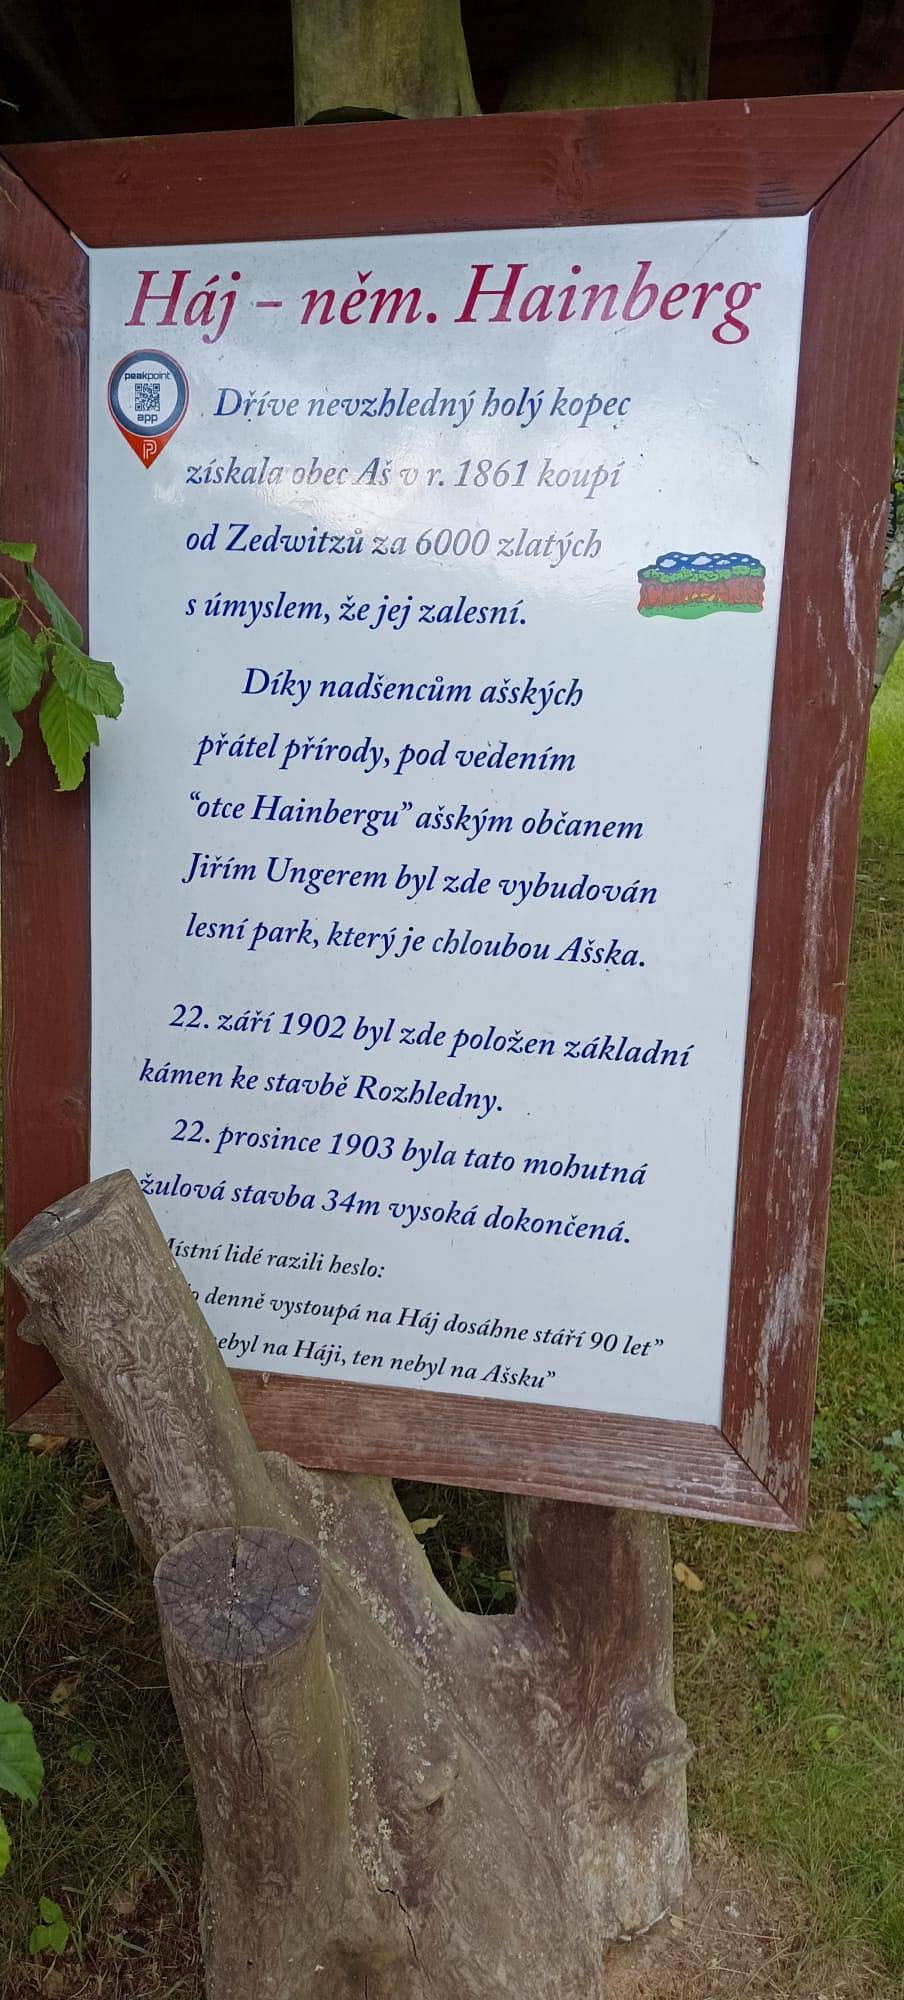 Háj - něm. Hainberg
peakpoint
app
P
Dříve nevzhledný holý kopec
získala obec Aš v r. 1861 koupí
od Zedwitzů za 6000 zlatých
s úmyslem, že jej zalesní.
Díky nadšencům ašských
přátel přírody, pod vedením
“otce Hainbergu” ašským občanem
Jiřím Ungerem byl zde vybudován
lesní park, který je chloubou Ašska.
22. září 1902 byl zde položen základní
kámen ke stavbě Rozhledny.
22. prosince 1903 byla tato mohutná
žulová stavba 34m vysoká dokončená.
Místní lidé razili heslo:
denně vystoupá na Háj dosáhne stáří 90 let”
na Háji, ten nebyl na Ašsku”